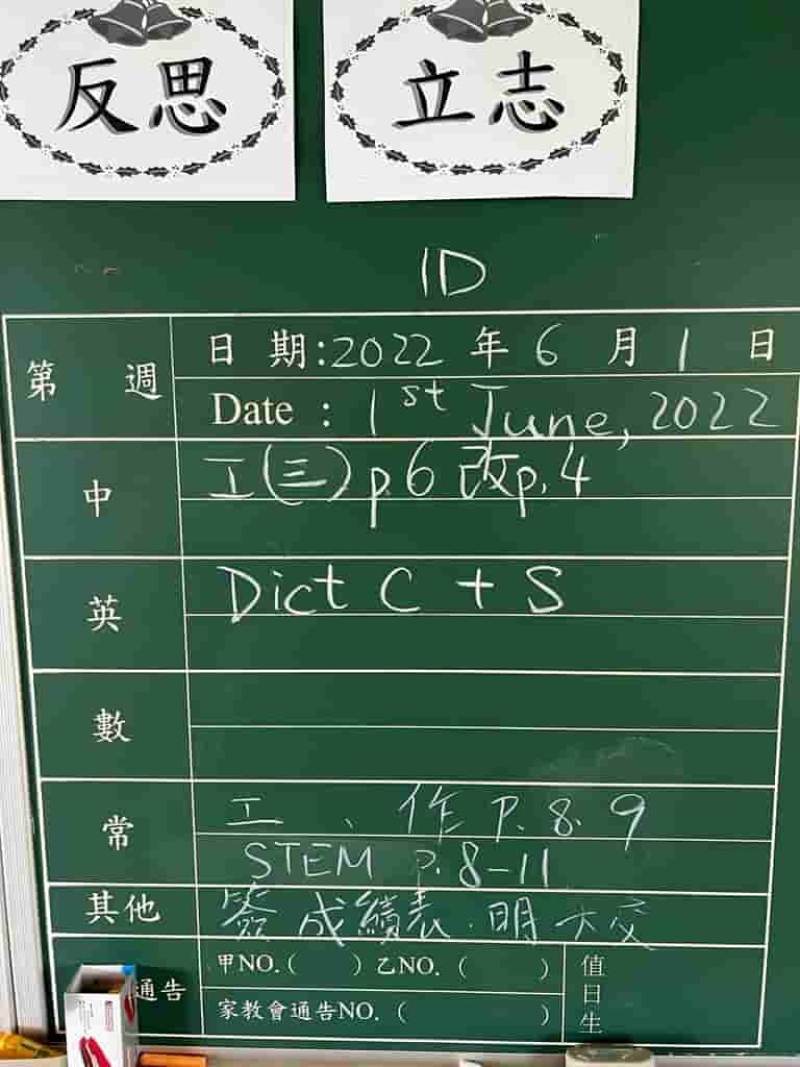 反思
立志
1D
第 週
日 期:2022 年 6 月 1 日
Date : 1st June, 2022
中
工(三)p6 改p.4
英
Dict C + S
數
常
工 、 作 P. 8. 9
STEM P. 8-11
其他
簽 成績表.明 交
通告
甲NO.( ) 乙NO. ( )
家教會通告NO. ( )
值日生